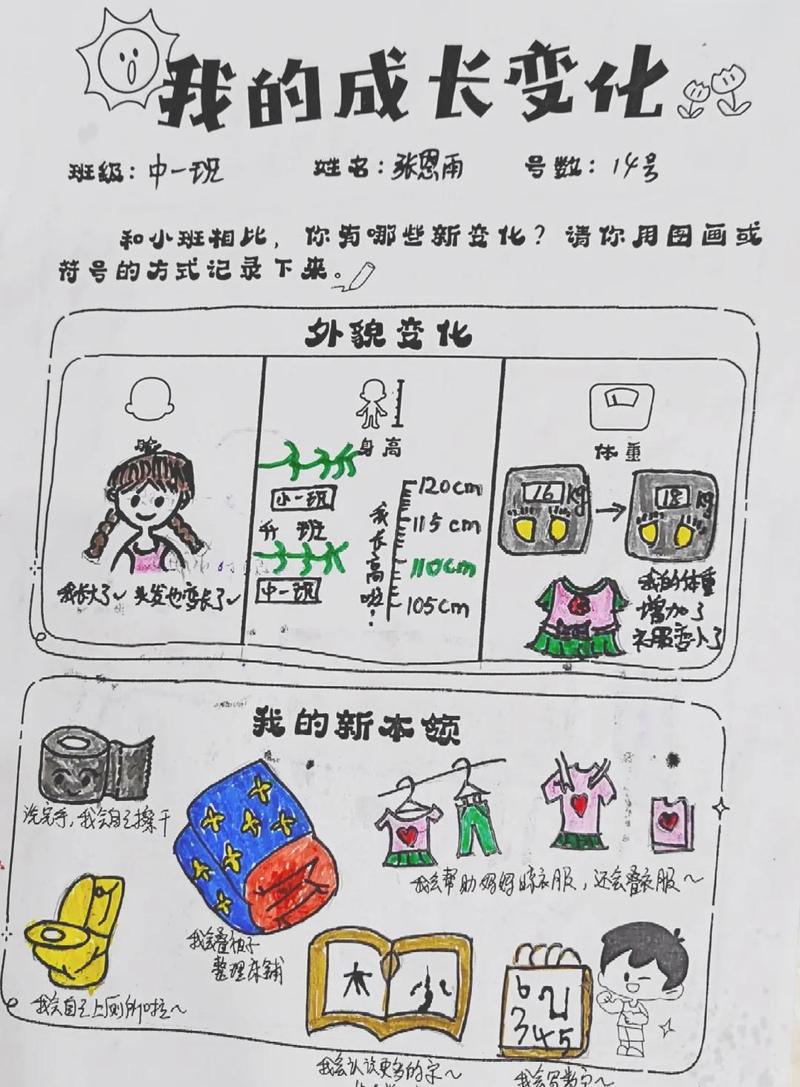 我的成长变化
班级：中一班 姓名：张恩雨 号数：14号
和小班相比，你有哪些新变化？请你用图画或
符号的方式记录下来。
外貌变化
脸
我长大了~ 头发也变长了~
身高
小一班
升 班
中一班
我长高啦！
120cm
115cm
110cm
105cm
体重
16 kg
18 kg
我的体重
增加了
衣服变小了
我的新本领
洗完手，我会自己擦干
我会叠被子
整理床铺
我会帮助妈妈晾衣服，还会叠衣服~
我会自己上厕所啦~
木 小
我会认识更多的字~
6 2
3 4 5
我会写数字~